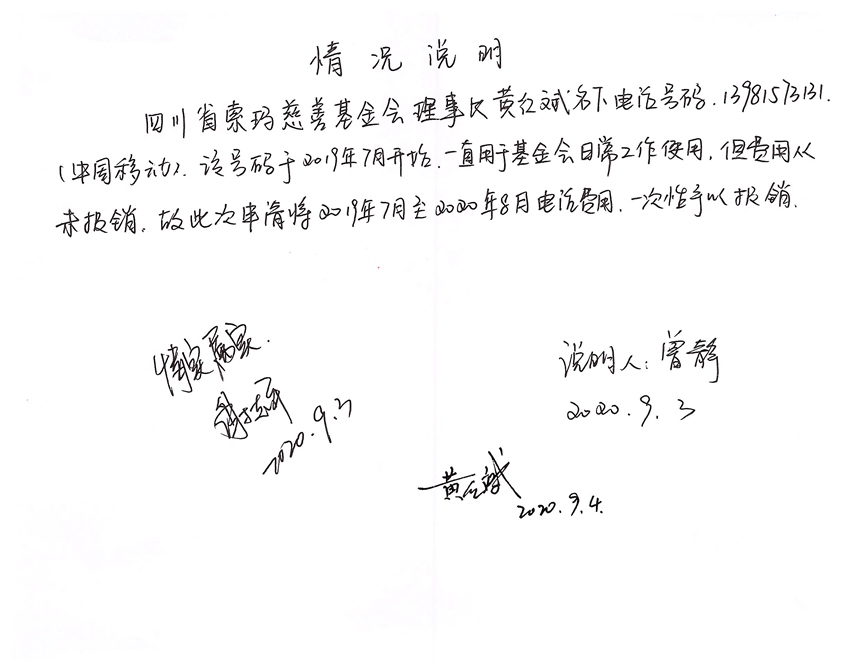 情况说明
四川省索玛慈善基金会理事长黄红斌名下电话号码.13981573131.
(中国移动).该号码于2019年7月开始.一直用于基金会日常工作使用,但费用从
未报销.故此次申请将2019年7月至2020年8月电话费用.一次性予以报销.
情况属实.
2020.9.3
说明人:曾静
2020.9.3
黄红斌
2020.9.4.